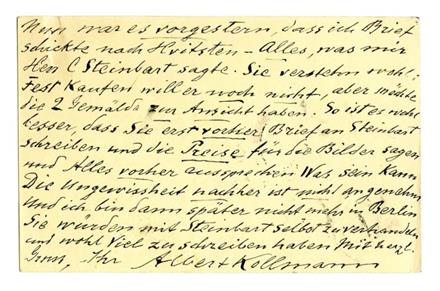 Nun war es vorgestern, dass ich Brief
schickte nach Hvitsten – Alles, was mir
Herr C Steinbart sagte. Sie verstehn wohl,
Fest Kaufen will er noch nicht, aber möchte
die 2 Gemälde zur Ansicht haben. So ist es wohl
besser, dass Sie erst vorher Brief an Steinbart
schreiben und die Preise für die Bilder sagen
und Alles vorher aussprechen Was sein kann
Die Ungewissheit nachher ist nicht angenehm
Und ich bin dann später nicht mehr in Berlin
Sie würden mit Steinbart selbst zu verhandeln
und wohl Viel zu schreiben haben Mit herzl.
Gruss, Ihr Albert Kollmann